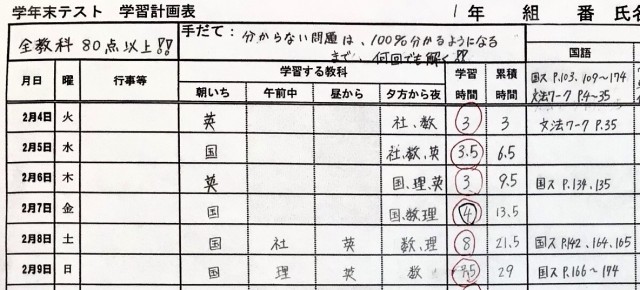 学年末テスト 学習計画表 1年 組 番 氏名
全教科 80点以上!! 手だて: 分からない問題は、100%分かるようになる
まで、何回でも解く!!
国語
月日 曜 行事等 学習する教科 学習時間 累積時間
朝いち 午前中 昼から 夕方から夜
国ス P.103、109~174
文法ワーク P.4~35
2月4日 火 英 社、数 3 3 文法ワーク P.35
2月5日 水 国 社、数、英 3.5 6.5
2月6日 木 英 国、理、英 3 9.5 国ス P.134、135
2月7日 金 国 国、数理 4 13.5
2月8日 土 国 社 英 数、理 8 21.5 国ス P.142、164、165
2月9日 日 国 理 英 数 7.5 29 国ス P.166~194